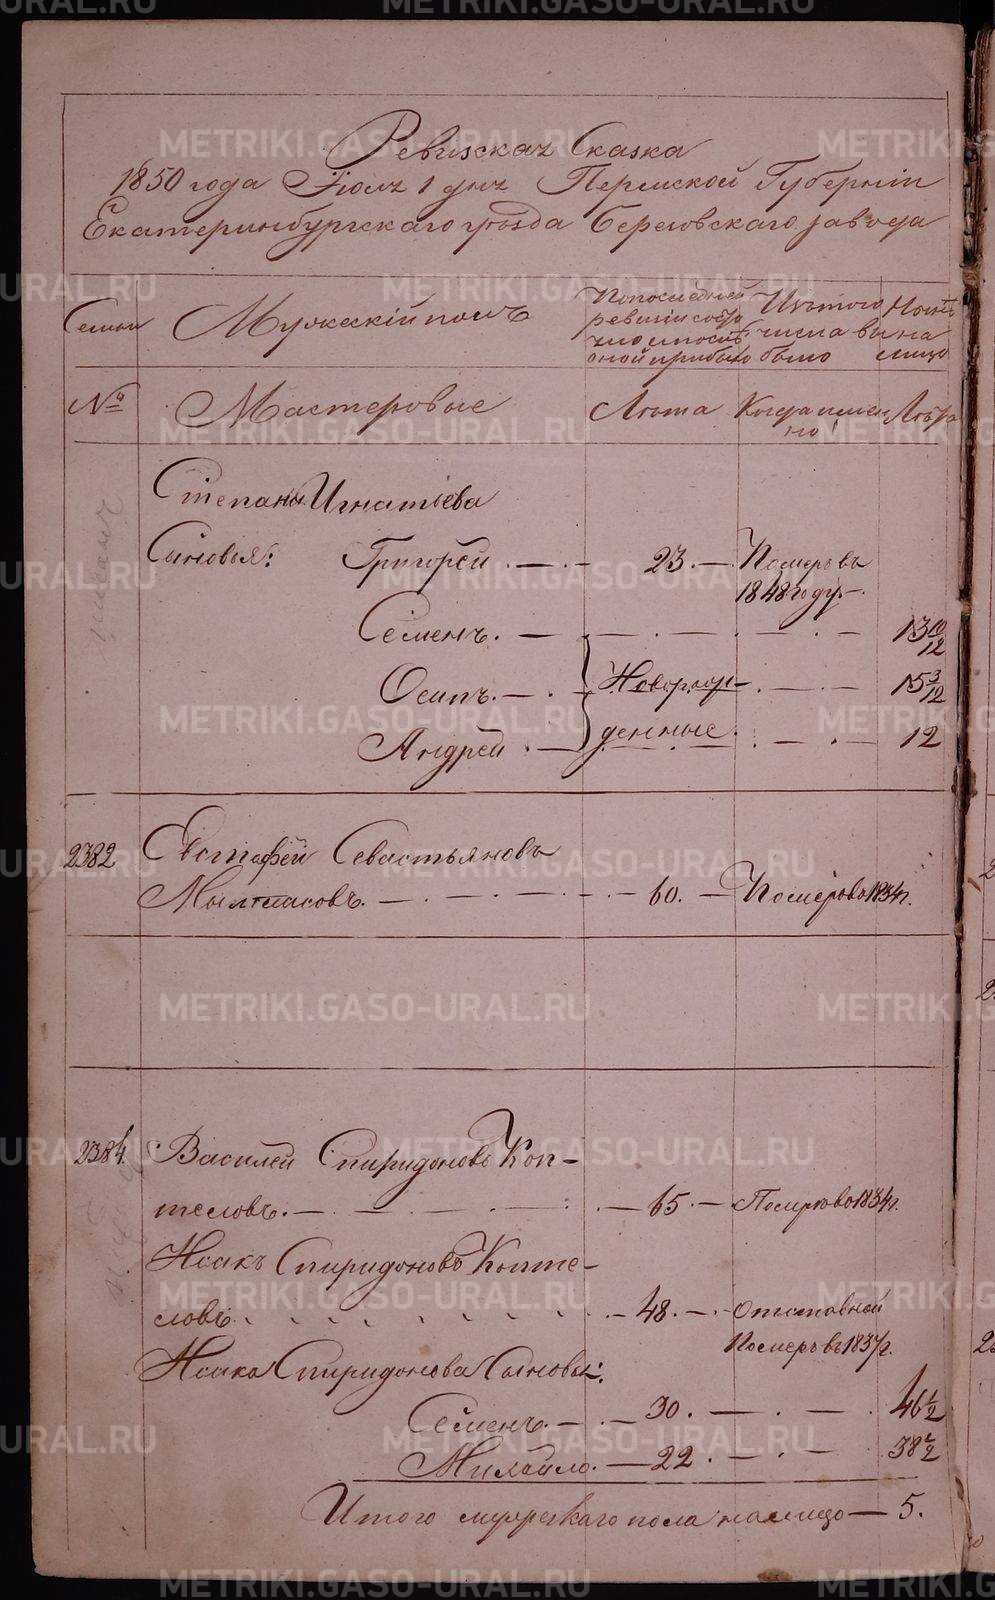 METRIKI.GASO-URAL.RU
Ревизская Сказка
1850 года Июля 1 дня Пермской Губернiи
Екатеринбургского уѣзда Березовского завода
Семьи
Мужескiй полъ
По последней ревизiи состояло и после оной прибыло
Изъ того числа выбыло
Ныне на лицо
№
Мастеровые
Лѣта
Когда именно
Лѣта
Степана Игнатьева
Сыновья: Григорей . — . — 23. — Померъ въ
1848 году. —
Семенъ. — . — . — 13 10/12
Осипъ. — . Новорож- . — . — 15 3/12
Андрей . — денные. . — . — 12
2382 Евстафей Севастьяновъ
— . — . — 60. — Померъ въ 1834 г.
2384. Василей Спиридоновъ Коп-
теловъ. — . — . — 65. — Померъ въ 1834 г.
Исакъ Спиридоновъ Копте-
ловъ. — 48. — . Отставной
Померъ въ 1837 г.
Исака Спиридонова Сыновья:
Семенъ. — . — 30. — . — . 46 1/2
Михайло. — 22. — . — 38 1/2
Итого мужескаго пола налицо — 5.